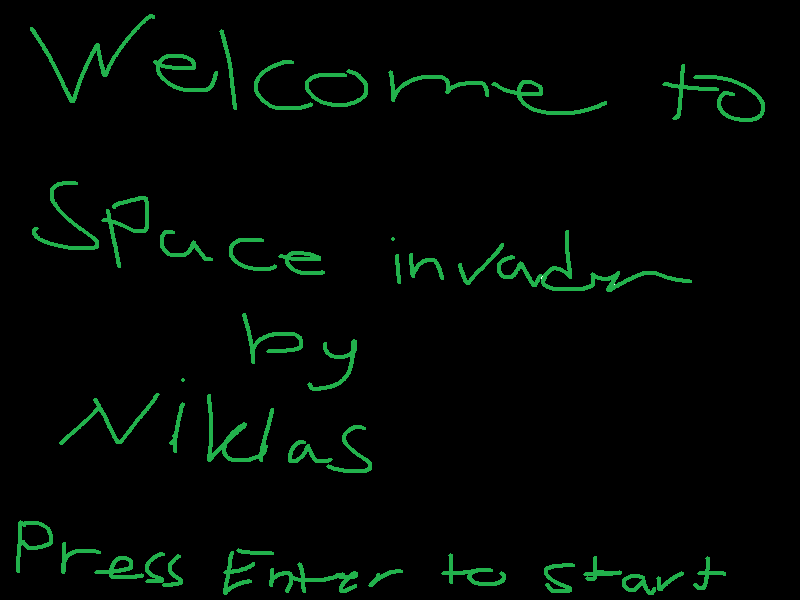 Welcome to
Space invader
by
Niklas
Press Enter to start